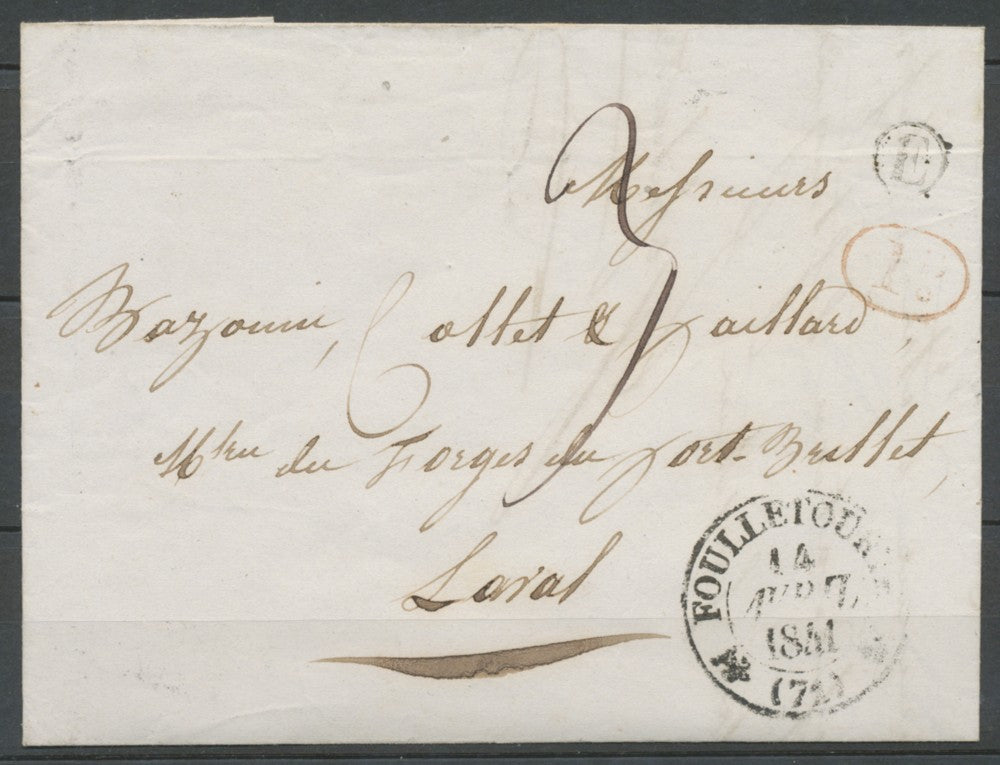 Messieurs
E
Bazouin, Collet & Paillard,
Mtres des Forges du Port-Brillet,
Laval
LA FOULLETOURTE
14
AVRIL
1841
(72)